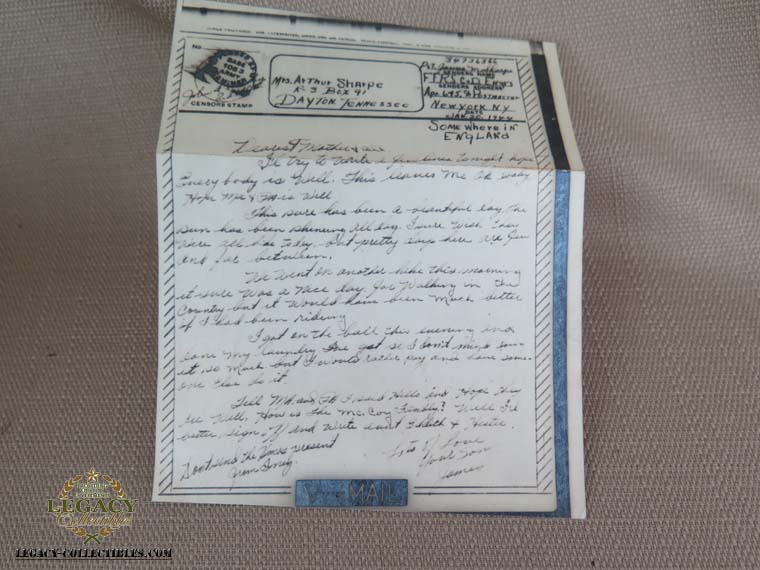 No.
BASE
1083
ARMY
CENSORS STAMP
Mrs. Arthur Sharpe
R-3 Box 91
Dayton, Tennessee
34736386
Pvt. James M. Sharpe
SENDERS NAME
SENDERS ADDRESS
APO 645, % Postmaster
New York N.Y.
DATE
Jan. 20, 1944
Somewhere in
England
Dearest Mother & all
I'll try to write a few lines tonight hope
Everybody is well. This leaves me ok
Hope Mr & Ma is well
This sure has been a beautiful day, the
sun has been shineing all day. I sure wish they
were all like today. But pretty days here are few
and far between.
We went on another hike this morning
it sure was a nice day for walking in the
Country but it would have been much better
if I had been rideing
I got on the ball this evening and
done my laundry I've got so I don't mind
it so much but I would rather pay and have some-
one else do it.
Tell Ma and Pa I said Hello and Hope they
are well, How is The McCoy Family? Well I'd
better sign off and write Aunt &
Lots of Love
Your Son
James
Don't send the Xmas present
from
V··· MAIL
LEGACY
Collectibles
LEGACY-COLLECTIBLES.COM